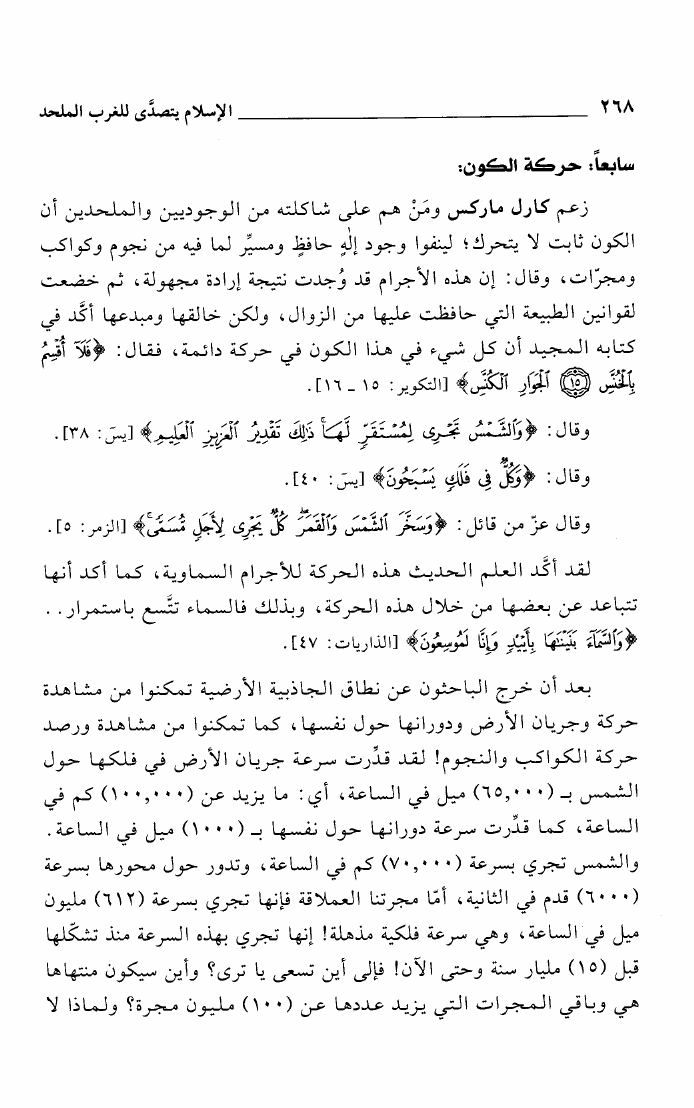 ٢٦٨ الإسلام يتصدَّى للغرب الملحد
سابعاً: حركة الكون:
زعم كارل ماركس ومَنْ هم على شاكلته من الوجوديين والملحدين أن
الكون ثابت لا يتحرك؛ لينفوا وجود إلٰهٍ حافظٍ ومسيِّر لما فيه من نجوم وكواكب
ومجرّات، وقال: إن هذه الأجرام قد وُجدت نتيجة إرادة مجهولة، ثم خضعت
لقوانين الطبيعة التي حافظت عليها من الزوال، ولكن خالقها ومبدعها أكَّد في
كتابه المجيد أن كل شيء في هذا الكون في حركة دائمة، فقال: ﴿فَلَآ أُقْسِمُ
بِٱلْخُنَّسِ ۝١٥ ٱلْجَوَارِ ٱلْكُنَّسِ﴾ [التكوير: ١٥ ـ ١٦].
وقال: ﴿وَٱلشَّمْسُ تَجْرِى لِمُسْتَقَرٍّ لَّهَا ۚ ذَٰلِكَ تَقْدِيرُ ٱلْعَزِيزِ ٱلْعَلِيمِ﴾ [يسۤ: ٣٨].
وقال: ﴿وَكُلٌّ فِى فَلَكٍ يَسْبَحُونَ﴾ [يسۤ: ٤٠].
وقال عزّ من قائل: ﴿وَسَخَّرَ ٱلشَّمْسَ وَٱلْقَمَرَ ۖ كُلٌّ يَجْرِى لِأَجَلٍ مُّسَمًّى ۗ﴾ [الزمر: ٥].
لقد أكَّد العلم الحديث هذه الحركة للأجرام السماوية، كما أكد أنها
تتباعد عن بعضها من خلال هذه الحركة، وبذلك فالسماء تتَّسع باستمرار..
﴿وَٱلسَّمَآءَ بَنَيْنَٰهَا بِأَيْي۟دٍ وَإِنَّا لَمُوسِعُونَ﴾ [الذاريات: ٤٧].
بعد أن خرج الباحثون عن نطاق الجاذبية الأرضية تمكنوا من مشاهدة
حركة وجريان الأرض ودورانها حول نفسها، كما تمكنوا من مشاهدة ورصد
حركة الكواكب والنجوم! لقد قدِّرت سرعة جريان الأرض في فلكها حول
الشمس بـ (٦٥,٠٠٠) ميل في الساعة، أي: ما يزيد عن (١٠٠,٠٠٠) كم في
الساعة، كما قدِّرت سرعة دورانها حول نفسها بـ (١٠٠٠) ميل في الساعة.
والشمس تجري بسرعة (٧٠,٠٠٠) كم في الساعة، وتدور حول محورها بسرعة
(٦٠٠٠) قدم في الثانية، أمّا مجرتنا العملاقة فإنها تجري بسرعة (٦١٢) مليون
ميل في الساعة، وهي سرعة فلكية مذهلة! إنها تجري بهذه السرعة منذ تشكّلها
قبل (١٥) مليار سنة وحتى الآن! فإلى أين تسعى يا ترى؟ وأين سيكون منتهاها
هي وباقي المجرات التي يزيد عددها عن (١٠٠) مليون مجرة؟ ولماذا لا